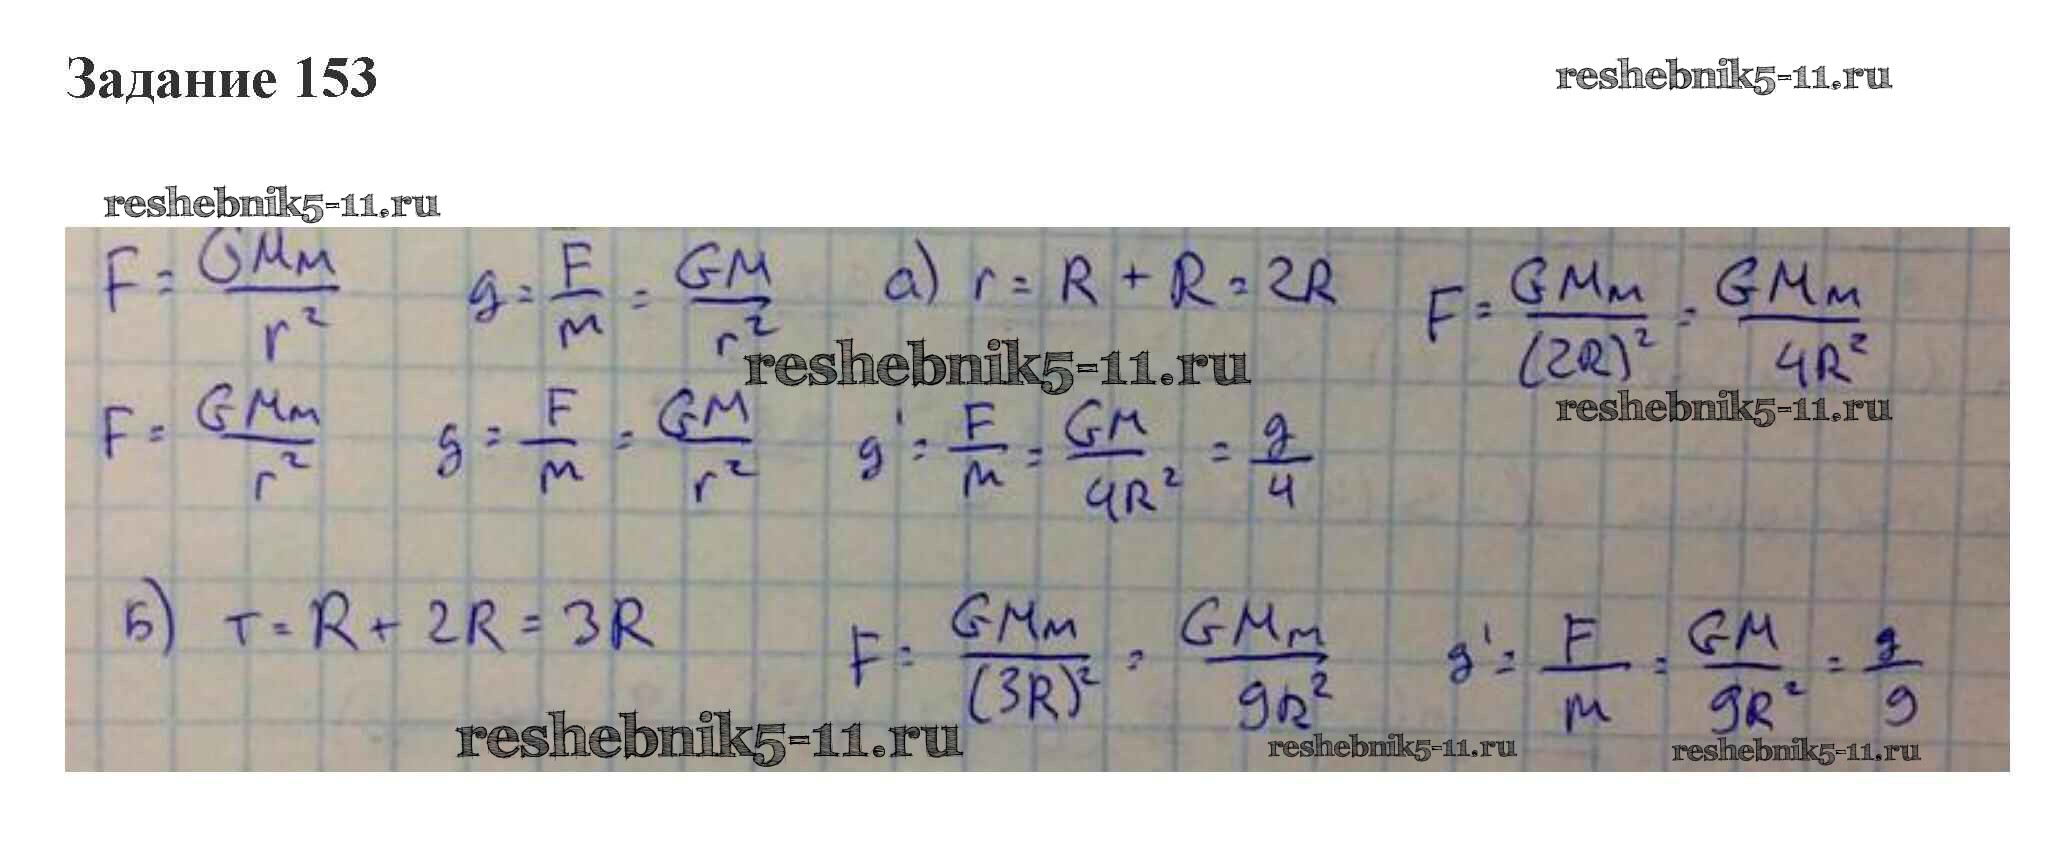 Задание 153
reshebnik5-11.ru
reshebnik5-11.ru
F = GMm/r² g = F/m = GM/r² а) r = R + R = 2R F = GMm/(2R)² = GMm/4R²
reshebnik5-11.ru
reshebnik5-11.ru
F = GMm/r² g = F/m = GM/r² g' = F/m = GM/4R² = g/4
Б) r = R + 2R = 3R F = GMm/(3R)² = GMm/9R² g' = F/m = GM/9R² = g/9
reshebnik5-11.ru
reshebnik5-11.ru
reshebnik5-11.ru